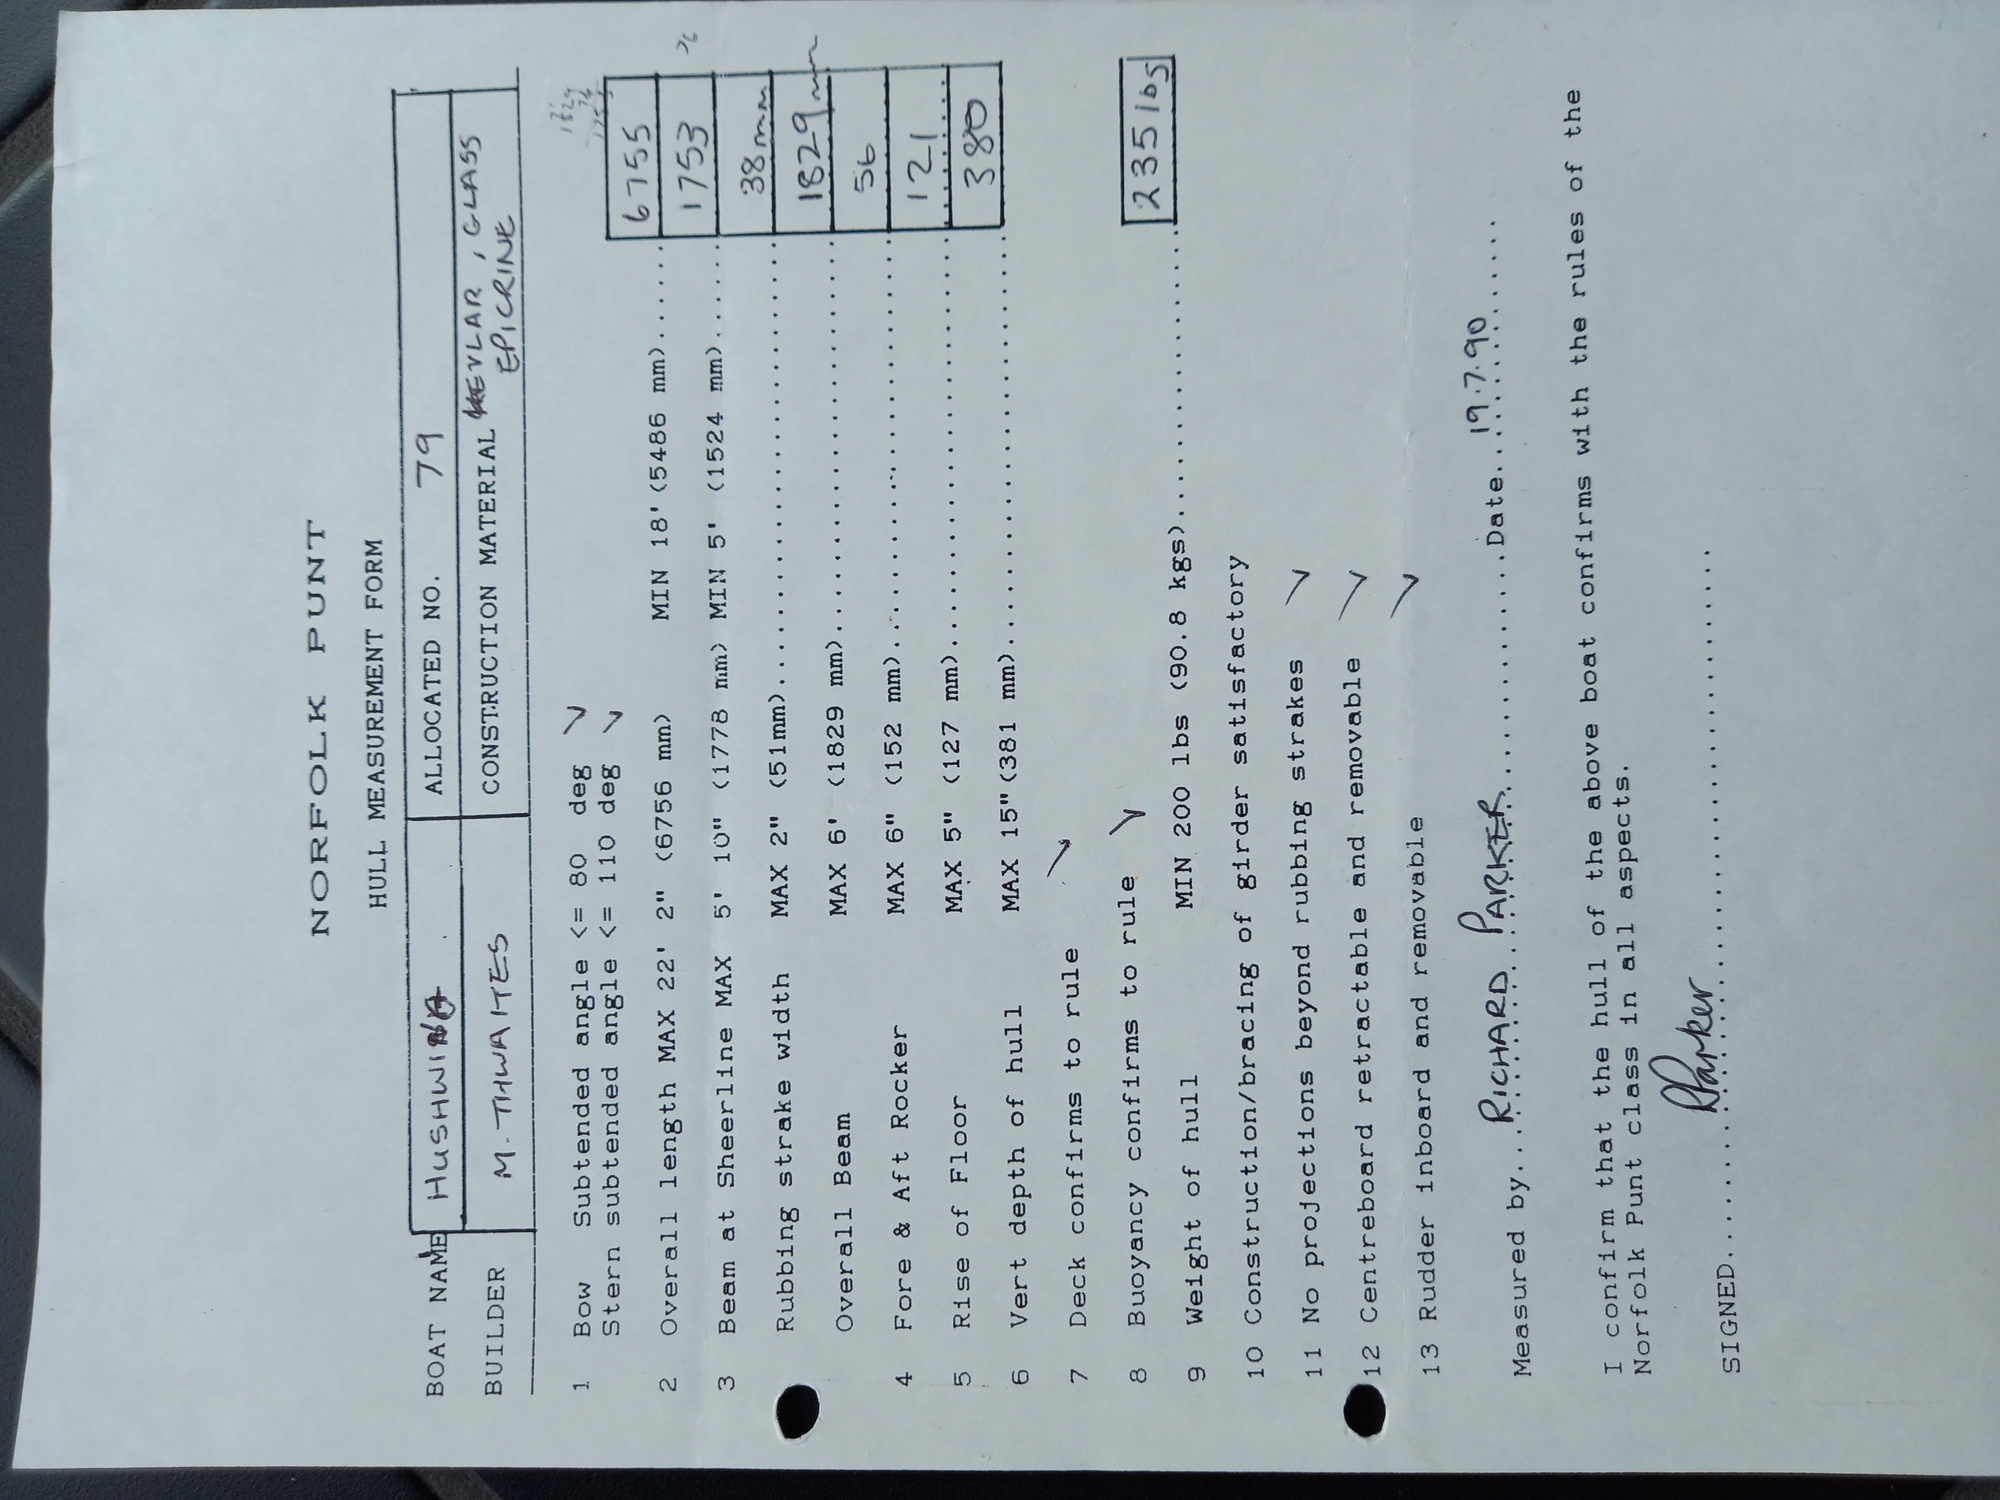 NORFOLK PUNT
HULL MEASUREMENT FORM
BOAT NAME HUSHWING ALLOCATED NO. 79
BUILDER M. THWAITES CONSTRUCTION MATERIAL KEVLAR, GLASS
EPICRINE
1 Bow Subtended angle <= 80 deg
Stern subtended angle <= 110 deg
1829
76
1753
2 Overall length MAX 22' 2" (6756 mm) MIN 18' (5486 mm)...... 6755
3 Beam at Sheerline MAX 5' 10" (1778 mm) MIN 5' (1524 mm)...... 1753
Rubbing strake width MAX 2" (51mm)......................... 38mm
Overall Beam MAX 6' (1829 mm)...................... 1829mm
4 Fore & Aft Rocker MAX 6" (152 mm)....................... 56
5 Rise of Floor MAX 5" (127 mm)....................... 121
6 Vert depth of hull MAX 15" (381 mm)....................... 380
7 Deck confirms to rule
8 Buoyancy confirms to rule
9 Weight of hull MIN 200 lbs (90.8 kgs)................. 235 lbs
10 Construction/bracing of girder satisfactory
11 No projections beyond rubbing strakes
12 Centreboard retractable and removable
13 Rudder inboard and removable
Measured by... RICHARD PARKER .............Date.. 19.7.90 ....
I confirm that the hull of the above boat confirms with the rules of the
Norfolk Punt class in all aspects.
SIGNED....... RParker .......................